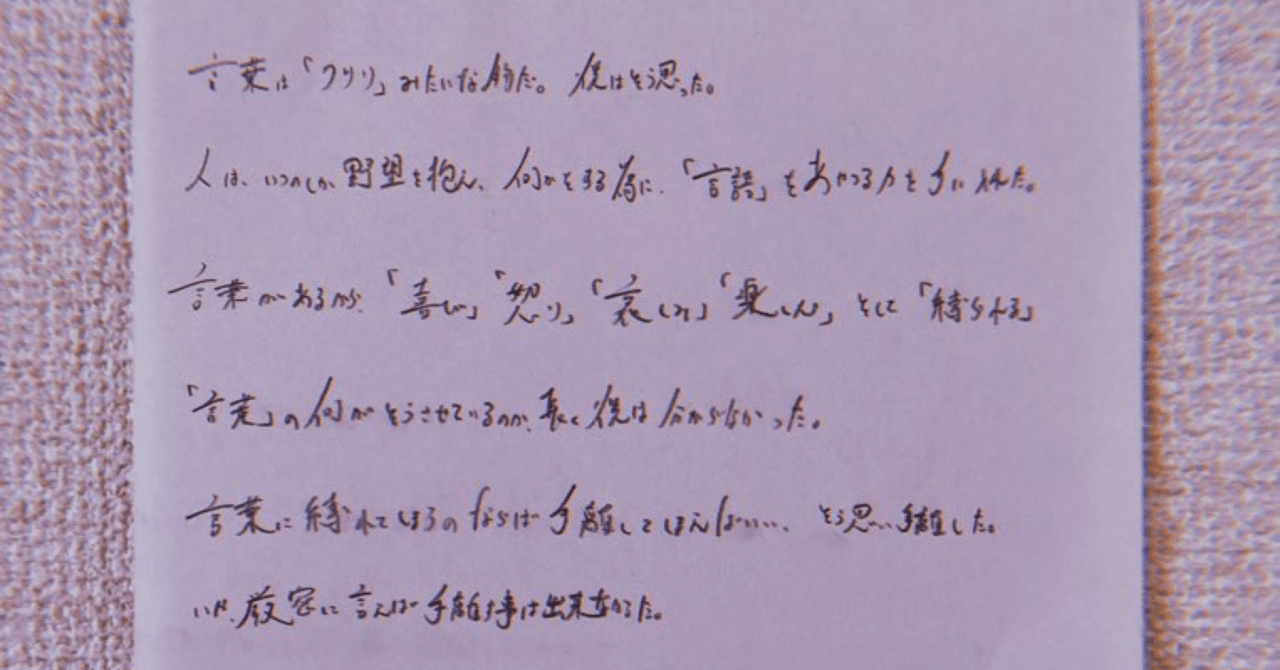 言葉は「クスリ」みたいな物だ。僕はそう思った。
人は、いつのしか野望を抱え、何かをする為に、「言語」をあやつる力を手に入れた。
言葉があるから、「喜び」「怒り」「哀しみ」「楽しん」そして「縛られる」
「言葉」の何がそうさせているのか、僕は分からなかった。
言葉に縛れてしまうのならば手離してしまえばいい…、そう思い手離した。
いや、厳密に言えば手離す事は出来なかった。